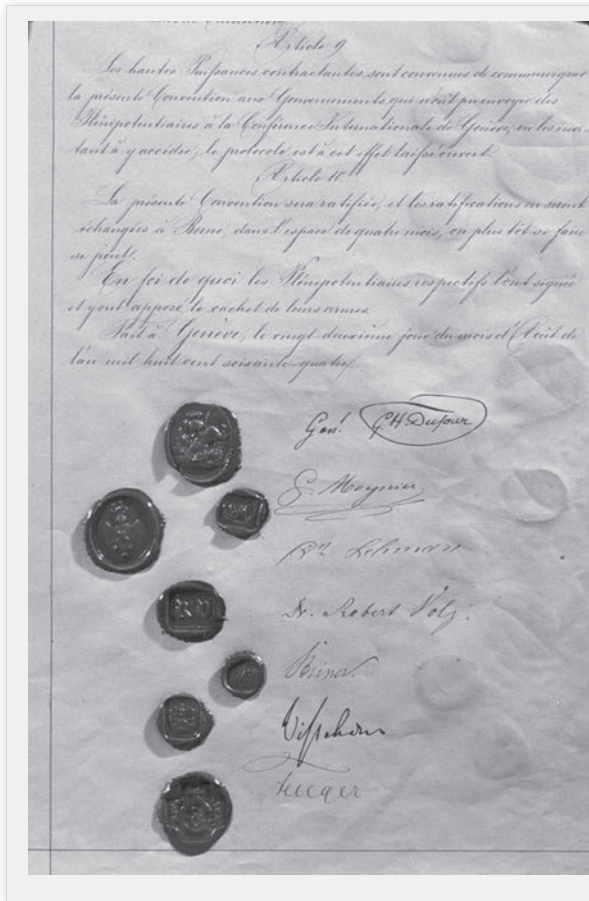 Article 9.
Les hautes Puissances contractantes sont convenues de communiquer
la présente Convention aux Gouvernements qui n'ont pu envoyer des
Plénipotentiaires à la Conférence Internationale de Genève, en les invi-
tant à y accéder; le protocole est à cet effet laissé ouvert.
Article 10.
La présente Convention sera ratifiée, et les ratifications en seront
échangées à Berne, dans l'espace de quatre mois, ou plus tôt si faire
se peut.
En foi de quoi les Plénipotentiaires respectifs l'ont signée
et y ont apposé le cachet de leurs armes.
Fait à Genève, le vingt deuxième jour du mois d'Août de
l'an mil huit cent soixante-quatre.
Genl. G. H. Dufour
G. Moynier
Dr. Lehmann
Dr. Robert Volz.
Steiner.
Visschers
Fenger